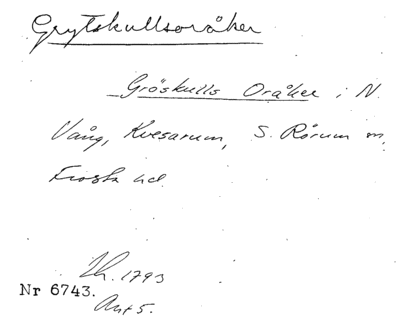 Grytskullsoråker
Gröskulls Oråker i N.
Vång, Kvesarum, S. Rörum m,
Frosta hd.
1793
Nr 6743.
Ant 5.